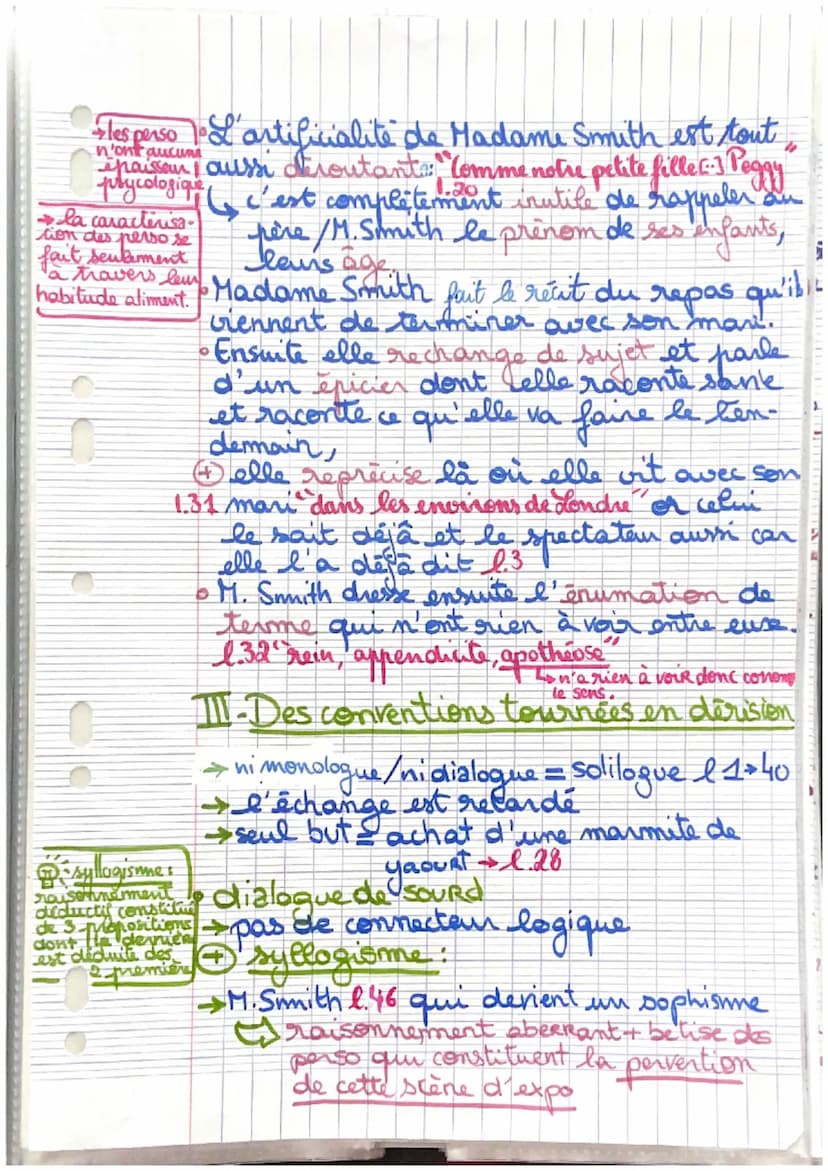 → les perso
n'ont aucune
épaisseur
psycologique
→ la caractérisa-
tion des perso se
fait seulement
à travers leur
habitude aliment.
• L'artificialité de Madame Smith est tout
aussi déroutante: "Comme notre petite fille (..) Peggy"
l.20
↳ c'est complètement inutile de rappeler au
père / M. Smith le prénom de ses enfants,
leurs âge.
• Madame Smith fait le récit du repas qu'ils
viennent de terminer avec son mari.
• Ensuite elle rechange de sujet et parle
d'un épicier dont elle raconte
et raconte ce qu'elle va faire le len-
demain,
⊕ elle reprécise là où elle vit avec son
l.31 mari "dans les environs de Londre" or celui
le sait déjà et le spectateur aussi car
elle l'a déjà dit l.3
• M. Smith dresse ensuite l'énumation de
terme qui n'ont rien à voir entre eux.
l.32 "rein, appendicite, apothéose"
↳ n'a rien à voir donc
le sens.
III - Des conventions tournées en dérision
→ ni monologue/ni dialogue = solilogue l 1→40
→ l'échange est retardé
→ seul but = achat d'une marmite de
yaourt → l.28
• dialogue de sourd
→ pas de connecteur logique
⊕ syllogisme :
syllogisme :
raisonnement
déductif constitué
de 3 propositions
dont la dernière
est déduite des
2 première
→ M. Smith l.46 qui devient un sophisme
⇨ raisonnement aberrant + betise des
perso qui constituent la pervention
de cette scène d'expo